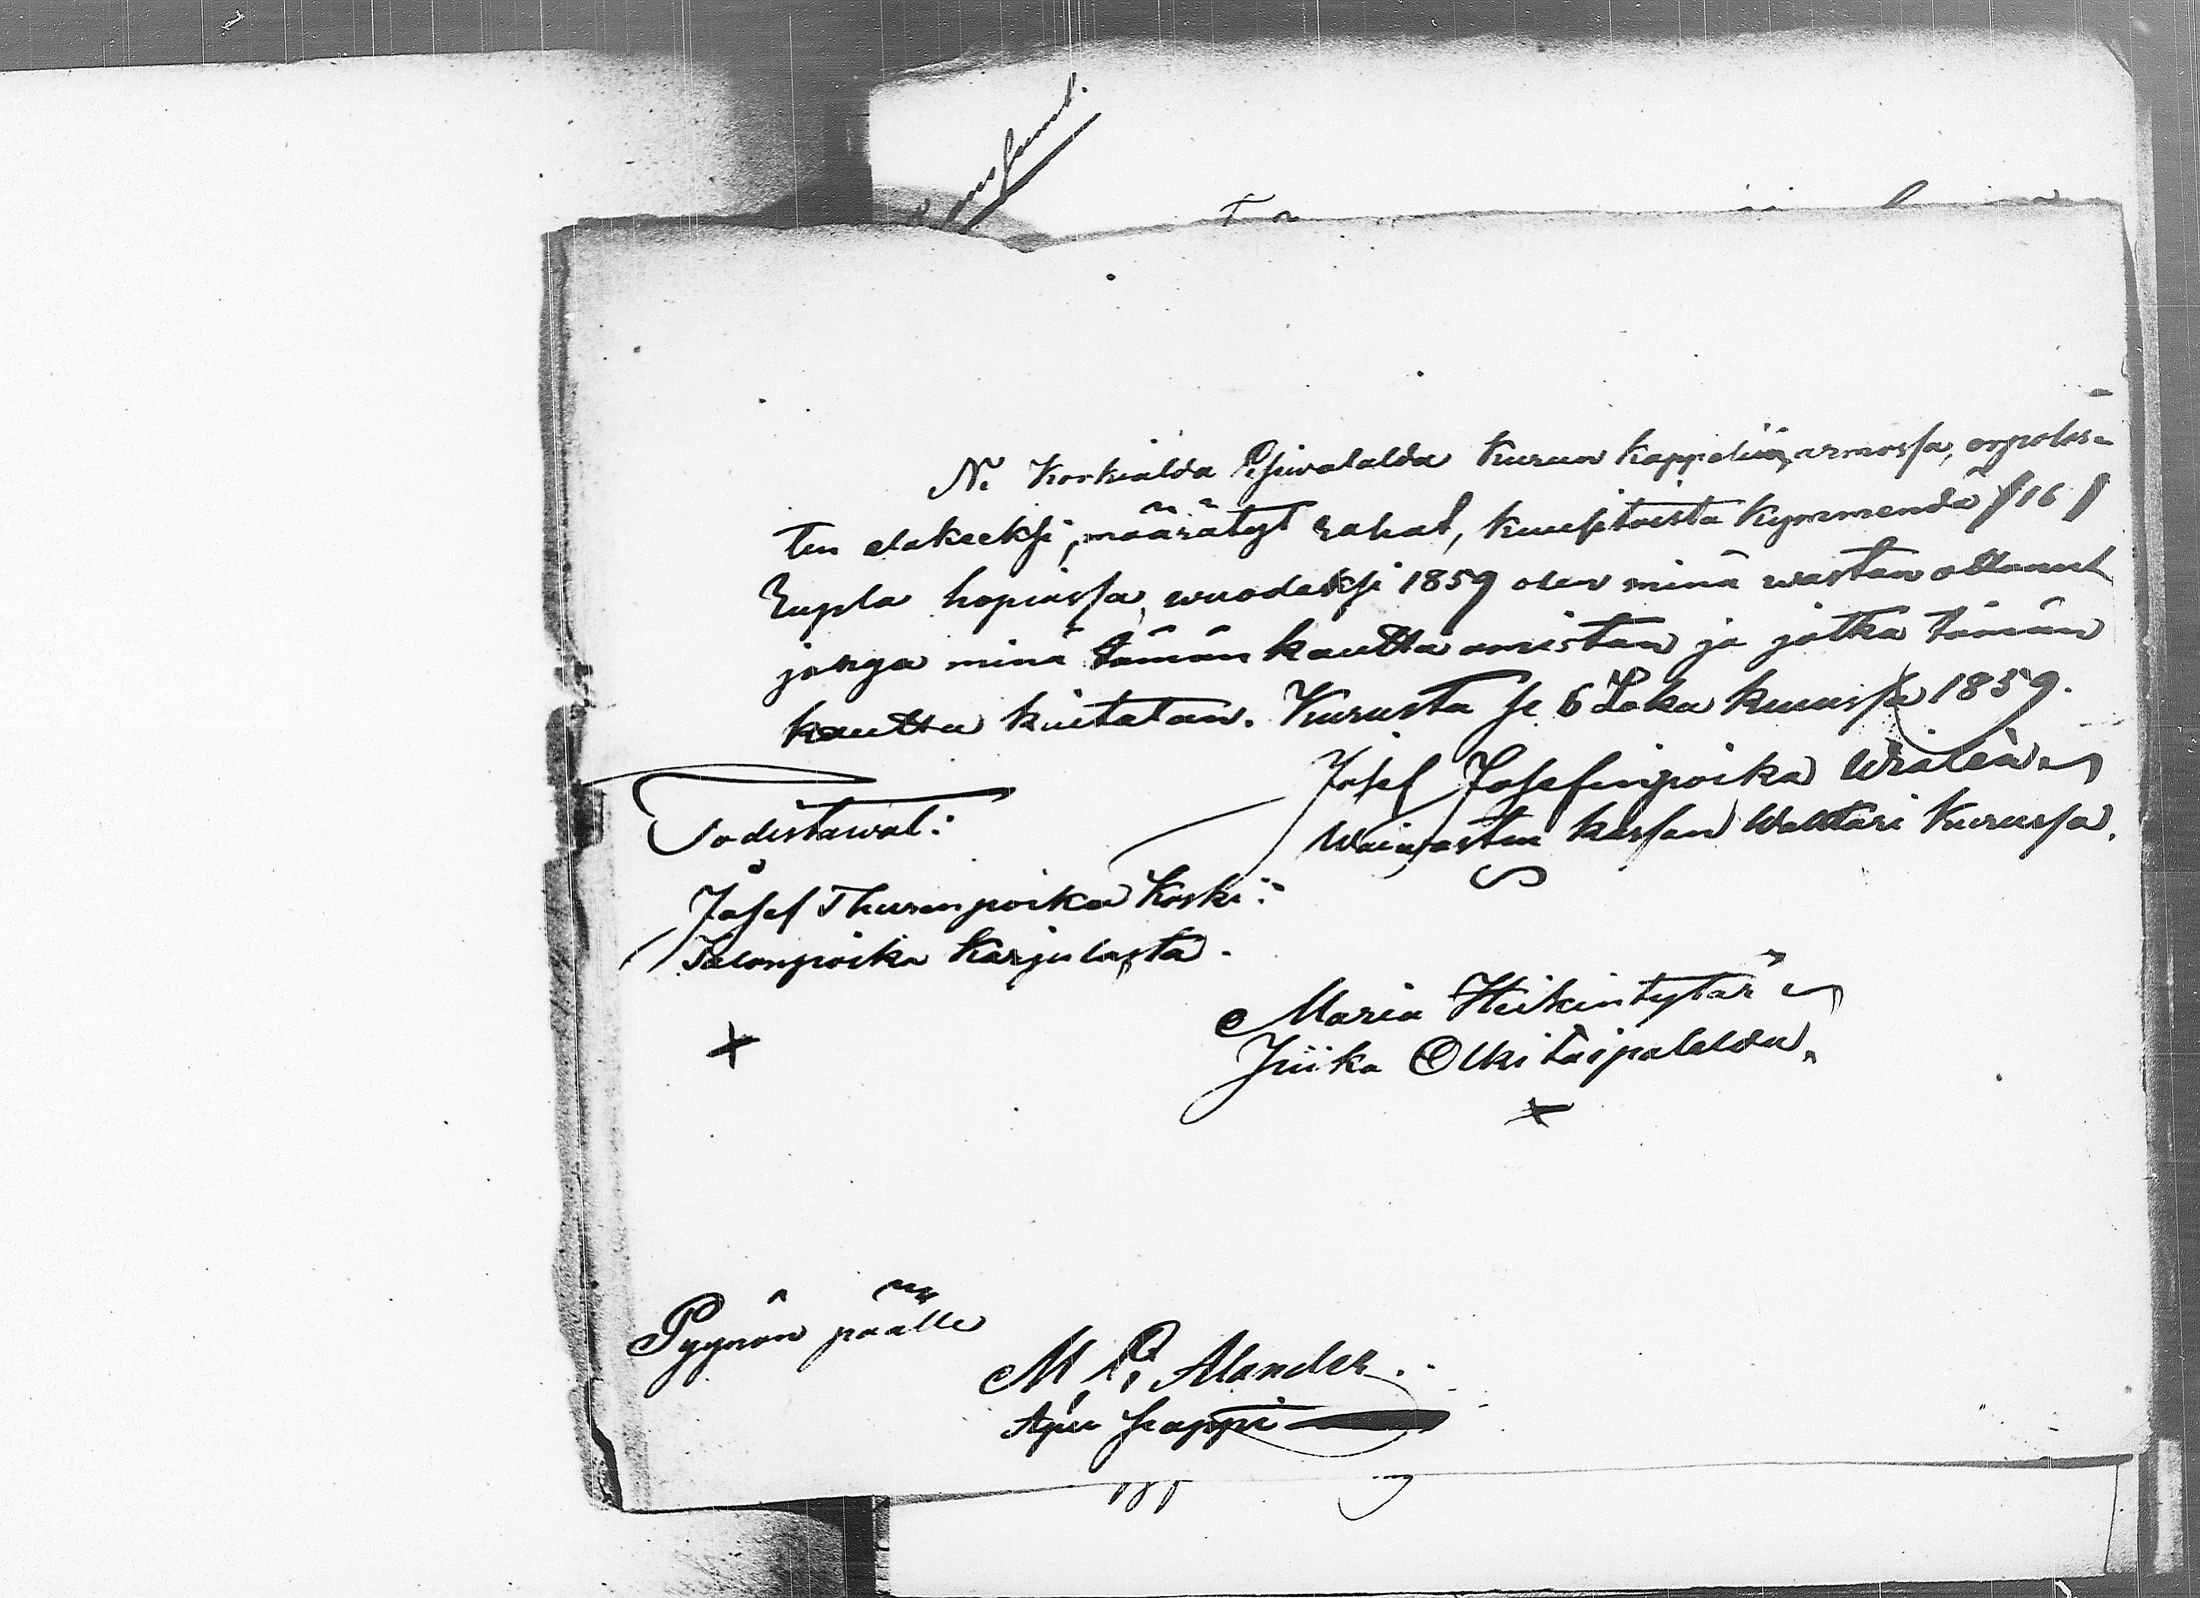 N. Korkialda Esiwalalda Kurun kappelin armossa, orpolas-
ten elakeeksi, määrätyt rahat, kuusitoista kymmendä /16/
Rupla hopiassa, wuodeksi 1859 olen minä wastan ottanut
jonga minä tämän kautta omistan ja jotka tämän
kautta kuitatan. Kurusta se 6 Loka kuussa 1859.
Josef Josefinpoika
Waiwasten kassan Walltari Kurussa.
Todistawat:
Josef Thurenpoika Koski:
Talonpoika Karjulasta.
Maria Heikintytär
Piika Olkitaipalelda.
Pyynön päälle
M. E. Alander.
Apu pappi